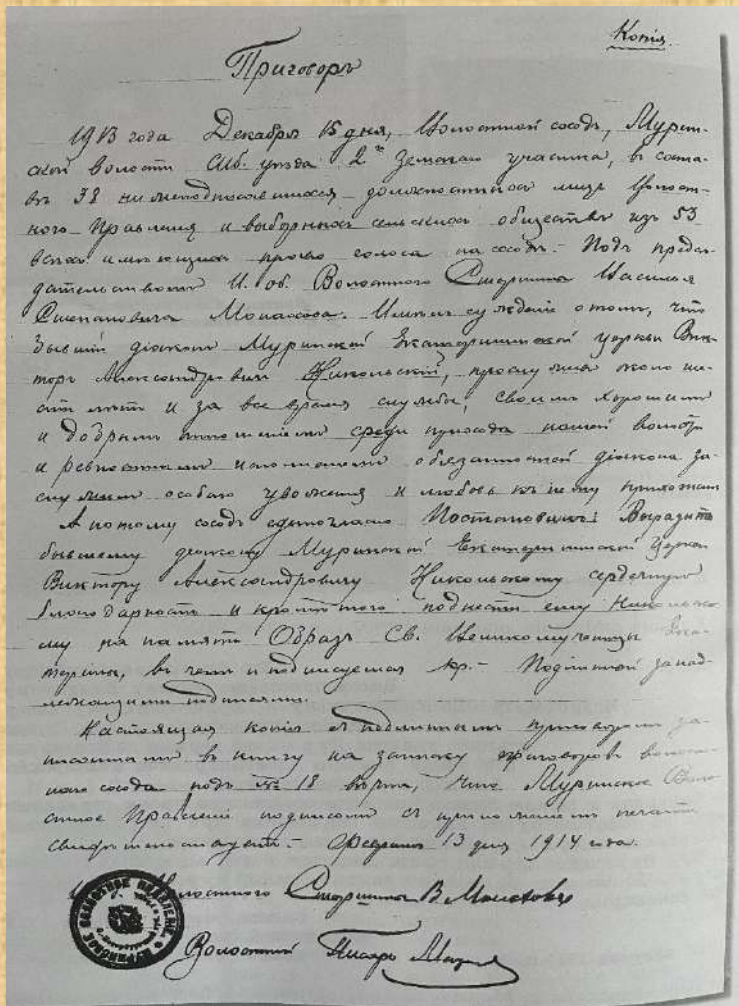 Копія
Приговоръ
1913 года Декабря 15 дня, Волостной сходъ, Мурин-
ской волости СПб. уѣзда 2го Земскаго участка, въ соста-
вѣ 38 нижеподписавшихся должностныхъ лицъ Волост-
ного Правленія и выборныхъ сельскихъ обществъ изъ 53
всѣхъ имѣющихъ право голоса на сходѣ. Подъ предсѣ-
дательствомъ И. об. Волостного Старшины Василья
Степановича Монахова. Имѣли сужденіе о томъ, что
бывшій діаконъ Муринской Екатерининской церкви Вик-
торъ Александровичъ Никольскій, прослужилъ около ше-
сти лѣтъ и за все время службы, своимъ хорошимъ
и добрымъ отношеніемъ среди прихода нашей волости
и ревностнымъ исполненіемъ обязанностей діакона за-
служилъ особаго уваженія и любовь къ нему прихожанъ
А потому сходъ единогласно Постановилъ: Выразить
бывшему діакону Муринской Екатерининской Церкви
Виктору Александровичу Никольскому сердечную
благодарность и кромѣ того поднести ему Никольско-
му на память Образъ Св. Великомученицы Ека-
терины, въ чемъ и подписуемся кр.- Подлинной за над-
лежащими подписями.
Настоящая копія съ подлиннымъ приговоромъ за-
писаннымъ въ книгу на записку приговоровъ волост-
ного схода подъ № 18 вѣрна, что Муринское Воло-
стное Правленіе подписомъ съ приложеніемъ печати
свидѣтельствуетъ. Февраля 13 дня 1914 года.
Волостного Старшина В. Монаховъ
Волостной Писарь
МУРИНСКОЕ ВОЛОСТНОЕ ПРАВЛЕНІЕ